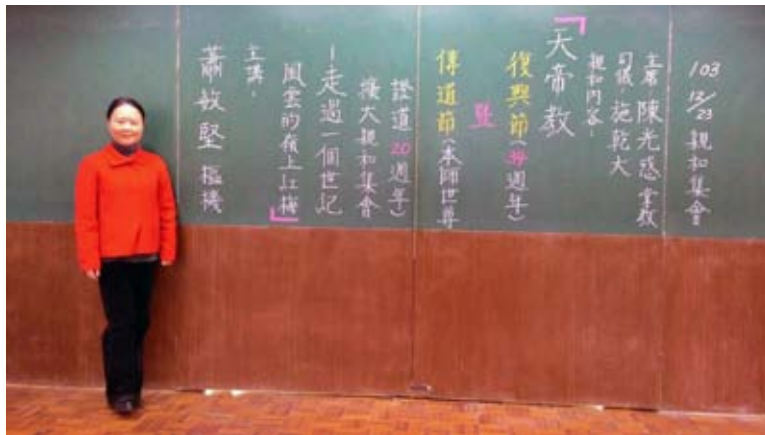 103
12/23 親和集會
主席 陳光惑掌教
司儀:施乾大
親和內容:
「天帝教
復興節(34週年)
暨
傳道節(本師世尊
證道20週年)
擴大親和集會
-走過一個世紀
風雲的嶺上紅梅」
主講:
蕭敏堅樞機